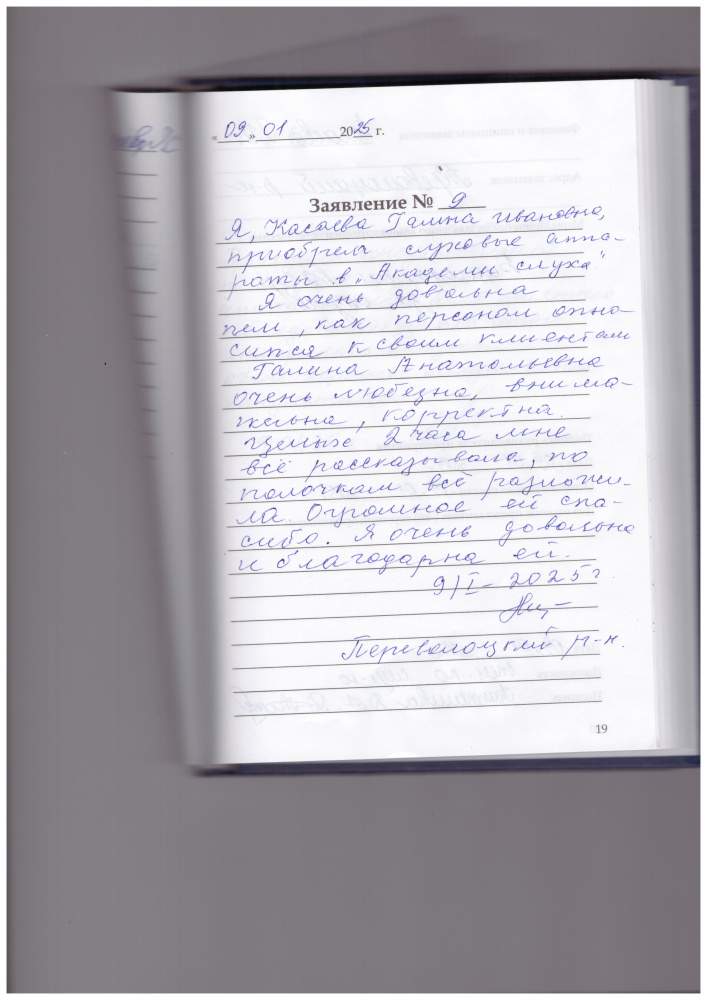 « 09 » 01 2025 г.
Заявление № 9
Я, Касаева Галина Ивановна,
приобрела слуховые аппа-
раты в „Академии слуха"
Я очень довольна
тем, как персонал отно-
сится к своим клиентам
Галина Анатольевна
очень любезна, внима-
тельна, корректна.
Целых 2 часа мне
всё рассказывала, по
полочкам всё разложи-
ла. Огромное ей спа-
сибо. Я очень довольна
и благодарна ей.
9/I - 2025 г
Переволоцкий р-н.
19